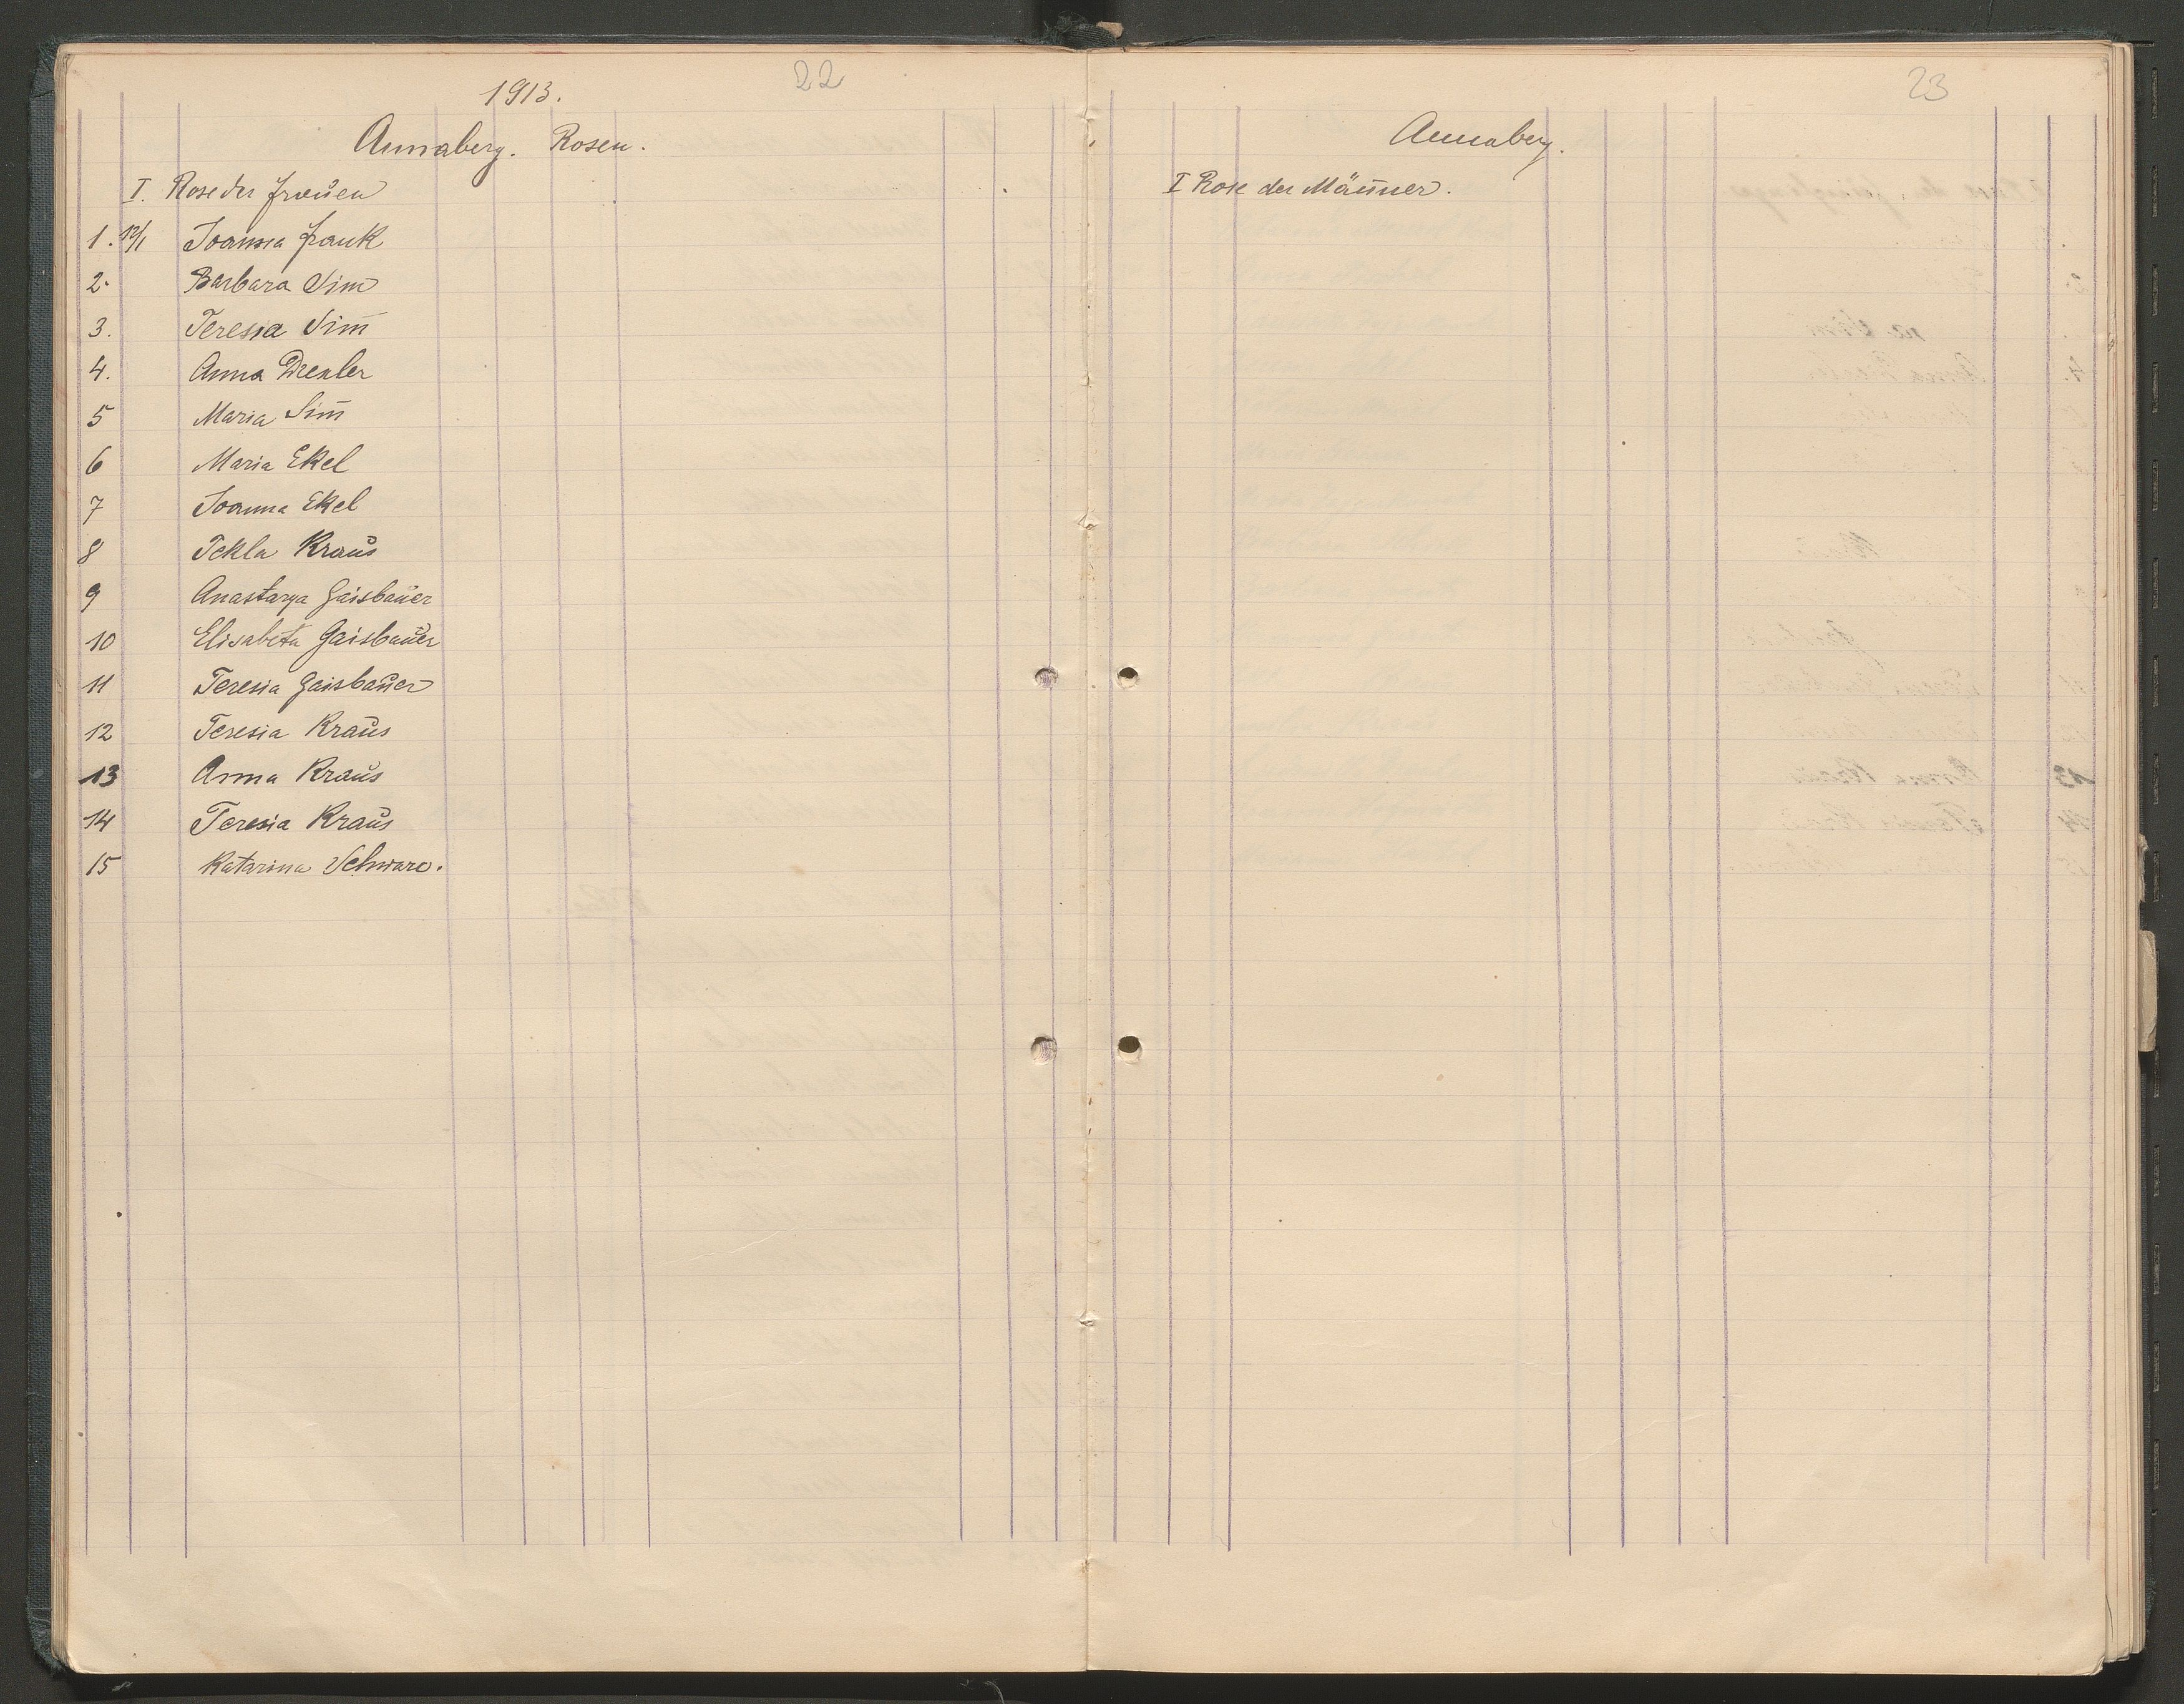 22
1913.
Annaberg. Rosen.
I. Rose der Frauen
1. 12/1 Joanna Frank
2. Barbara Sim
3. Teresia Sim̄
4. Anna Drexler
5 Maria Sim̄
6 Maria Ekel
7 Joanna Ekel
8 Tekla Kraus
9 Anastazya Gaisbauer
10 Elisabeta Gaisbauer
11 Teresia Gaisbauer
12 Teresia Kraus
13 Anna Kraus
14 Teresia Kraus
15 Katarina Schwarc.
23
Annaberg.
I Rose der Mäñner.